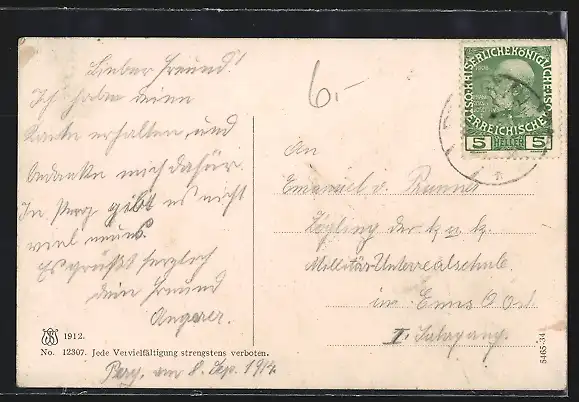 Lieber Freund!
Ich habe deine
Karte erhalten, und
bedanke mich dafür.
In Perg gibt es nicht
viel neues.
Es grüßt herzlich
dein Freund
Angerer.
1912.
No. 12307. Jede Vervielfältigung strengstens verboten.
Perg, am 8. Sep. 1914
6.-
KAISERLICHE KÖNIGLICHE
ÖSTERREICHISCHE
5 HELLER 5
An
Emanuel v. Brunner
Zögling der k. u. k.
Militär-Unterrealschule
in Enns O. Öst.
II. Jahrgang.
5465-34